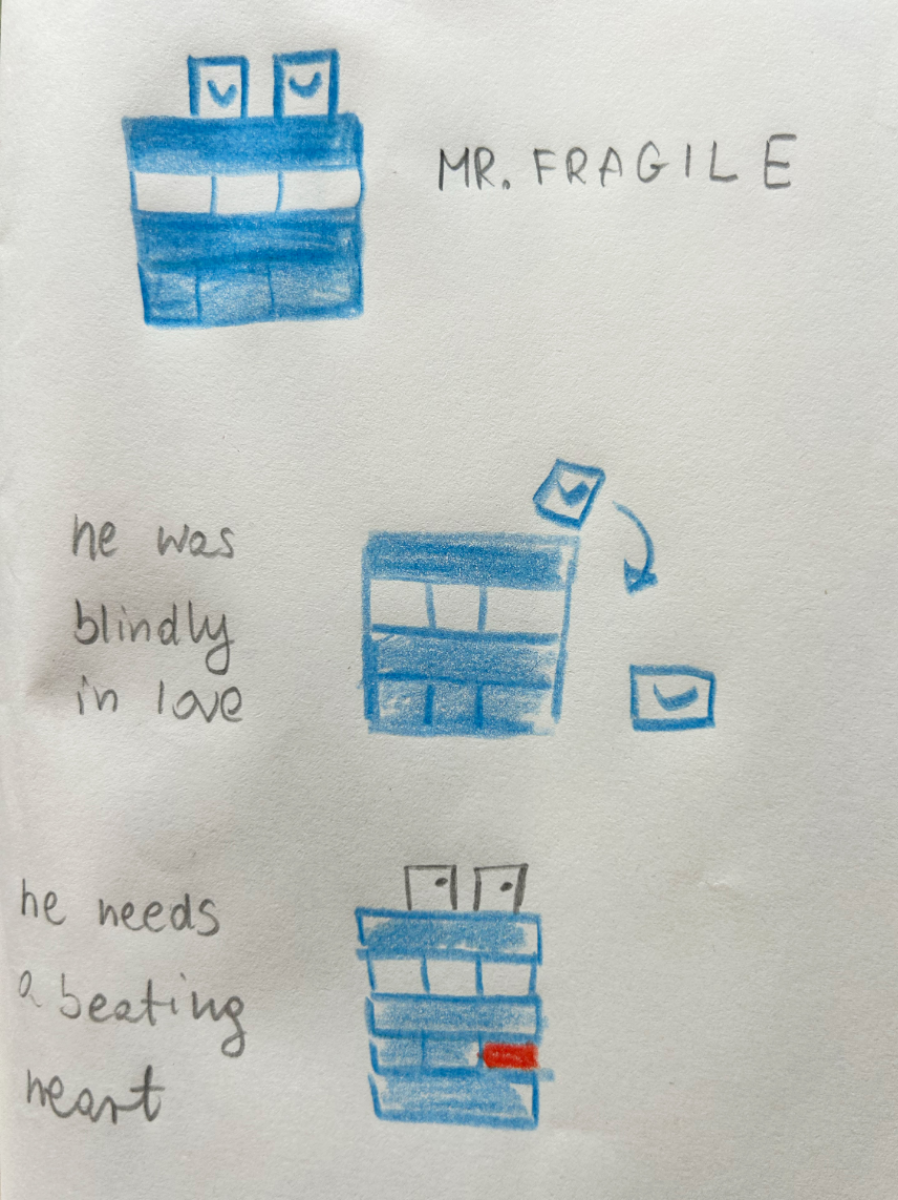 MR. FRAGILE
he was
blindly
in love
he needs
a beating
heart